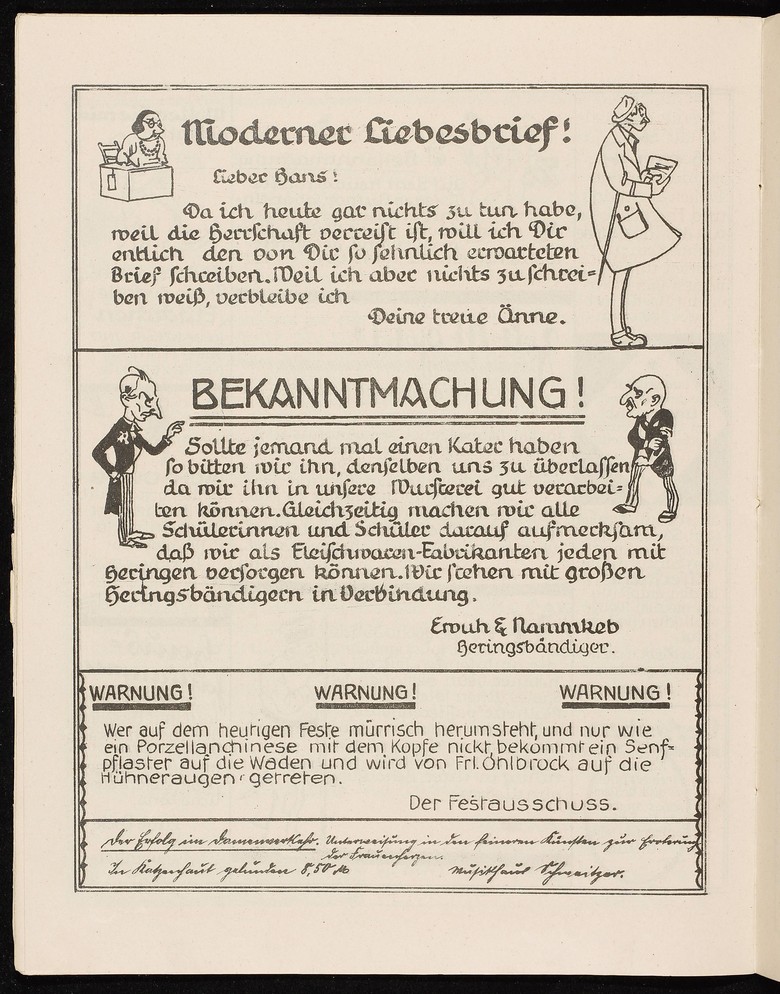 Moderner Liebesbrief!
Lieber Hans!
Da ich heute gar nichts zu tun habe,
weil die Herrschaft verreist ist, will ich Dir
entlich den von Dir so sehnlich erwarteten
Brief schreiben. Weil ich aber nichts zu schrei=
ben weiß, verbleibe ich
Deine treue Änne.
BEKANNTMACHUNG!
Sollte jemand mal einen Kater haben
so bitten wir ihn, denselben uns zu überlassen
da wir ihn in unsere Wursterei gut verarbei-
ten können. Gleichzeitig machen wir alle
Schülerinnen und Schüler darauf aufmerksam,
daß wir als Fleischwaren-Fabrikanten jeden mit
Heringen versorgen können. Wir stehen mit großen
Heringsbändigern in Verbindung.
Ewuh & Nammkeb
Heringsbändiger.
WARNUNG! WARNUNG! WARNUNG!
Wer auf dem heutigen Feste mürrisch herumsteht, und nur wie
ein Porzellanchinese mit dem Kopfe nickt, bekommt ein Senf=
pflaster auf die Waden und wird von Frl. Ohlbrock auf die
Hühneraugen getreten.
Der Festausschuss.
Der Erfolg im Damenverkehr. Unterweisung in den feineren Künsten zur Eroberung
der Frauenherzen.
In Katzenhaut gebunden 8,50 M Musikhaus Schweitzer.